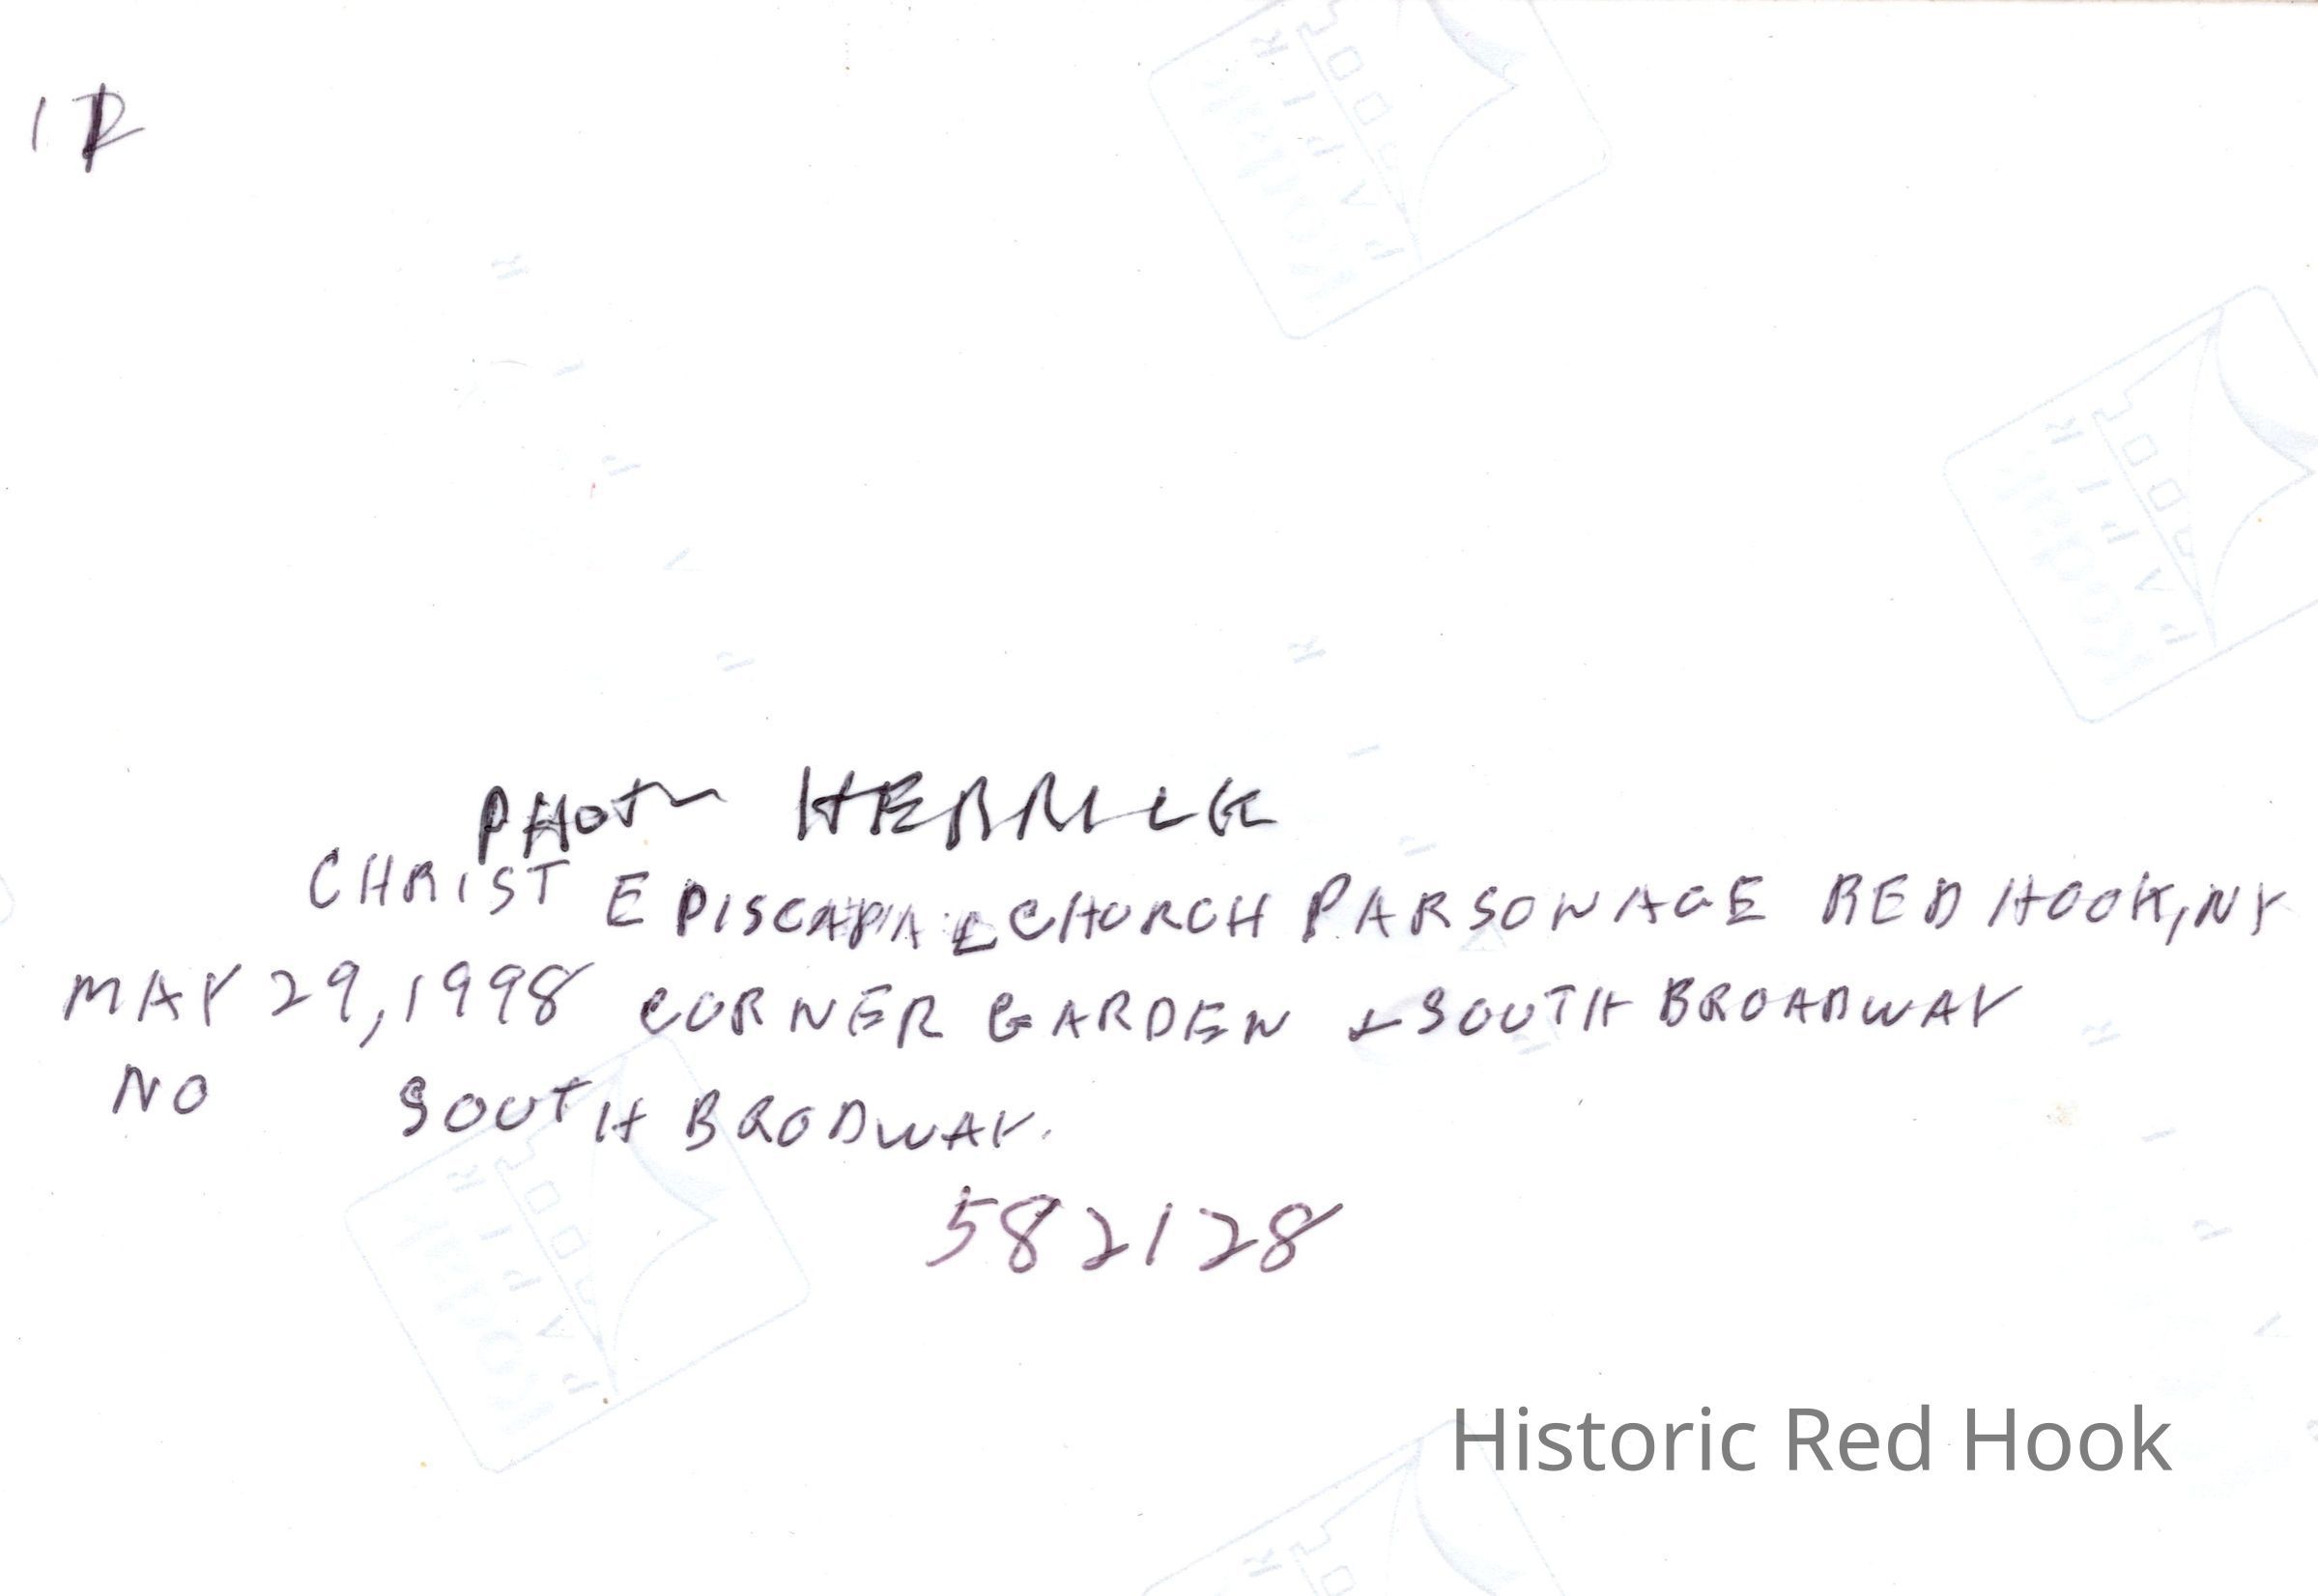 PHOTO HERRICK
CHRIST EPISCAPAL CHURCH PARSONAGE RED HOOK, NY
MAY 29, 1998 CORNER GARDEN & SOUTH BROADWAY
NO SOUTH BRODWAY.
582128
Historic Red Hook